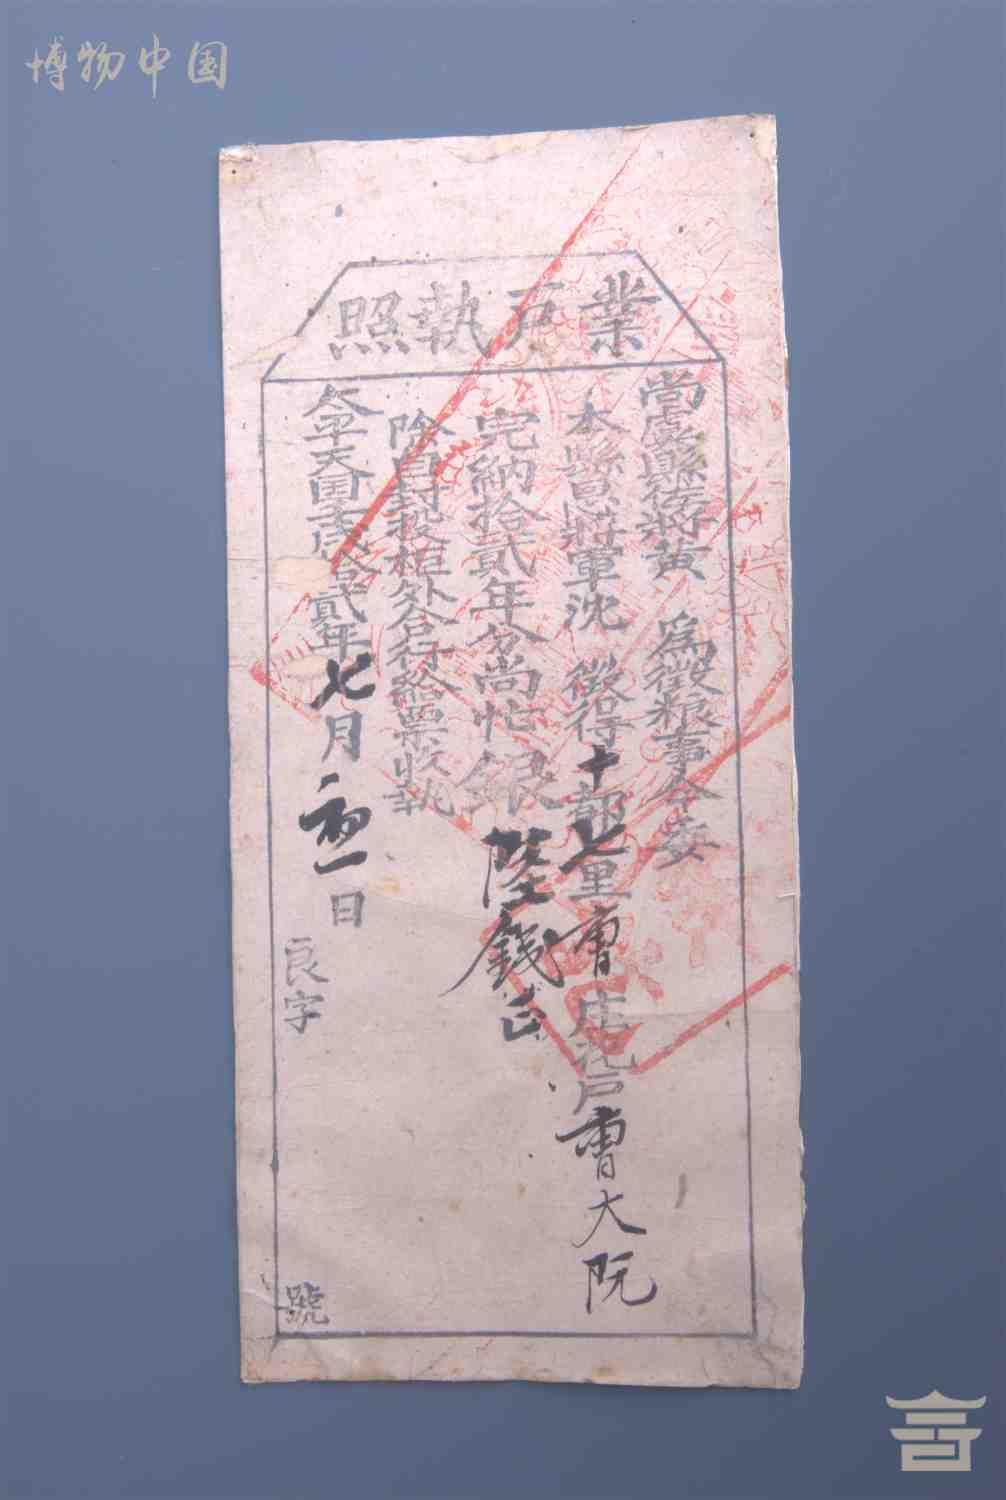 博物中国
業戶執照
尚虞縣監軍黃 為徵粮事今委
本縣恩將軍沈 徵得十都七里曹庄花戶曹大阮
完納拾貳年分尚忙銀陸錢正
除自封投柜外合行給票收執
太平天囯壬戌拾貳年七月初一日
良字 號